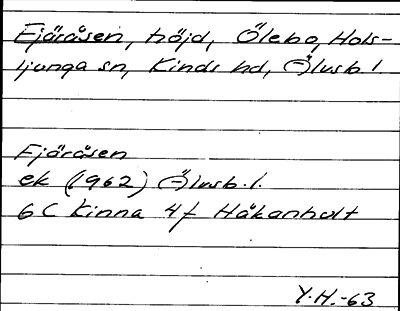 Fjäråsen, höjd, Ölebo, Hols-
ljunga sn, Kinds hd, Älvsb. l.
Fjäråsen
ek (1962) Älvsb. l.
6 C Kinna 4f Håkanhult
Y.H.-63